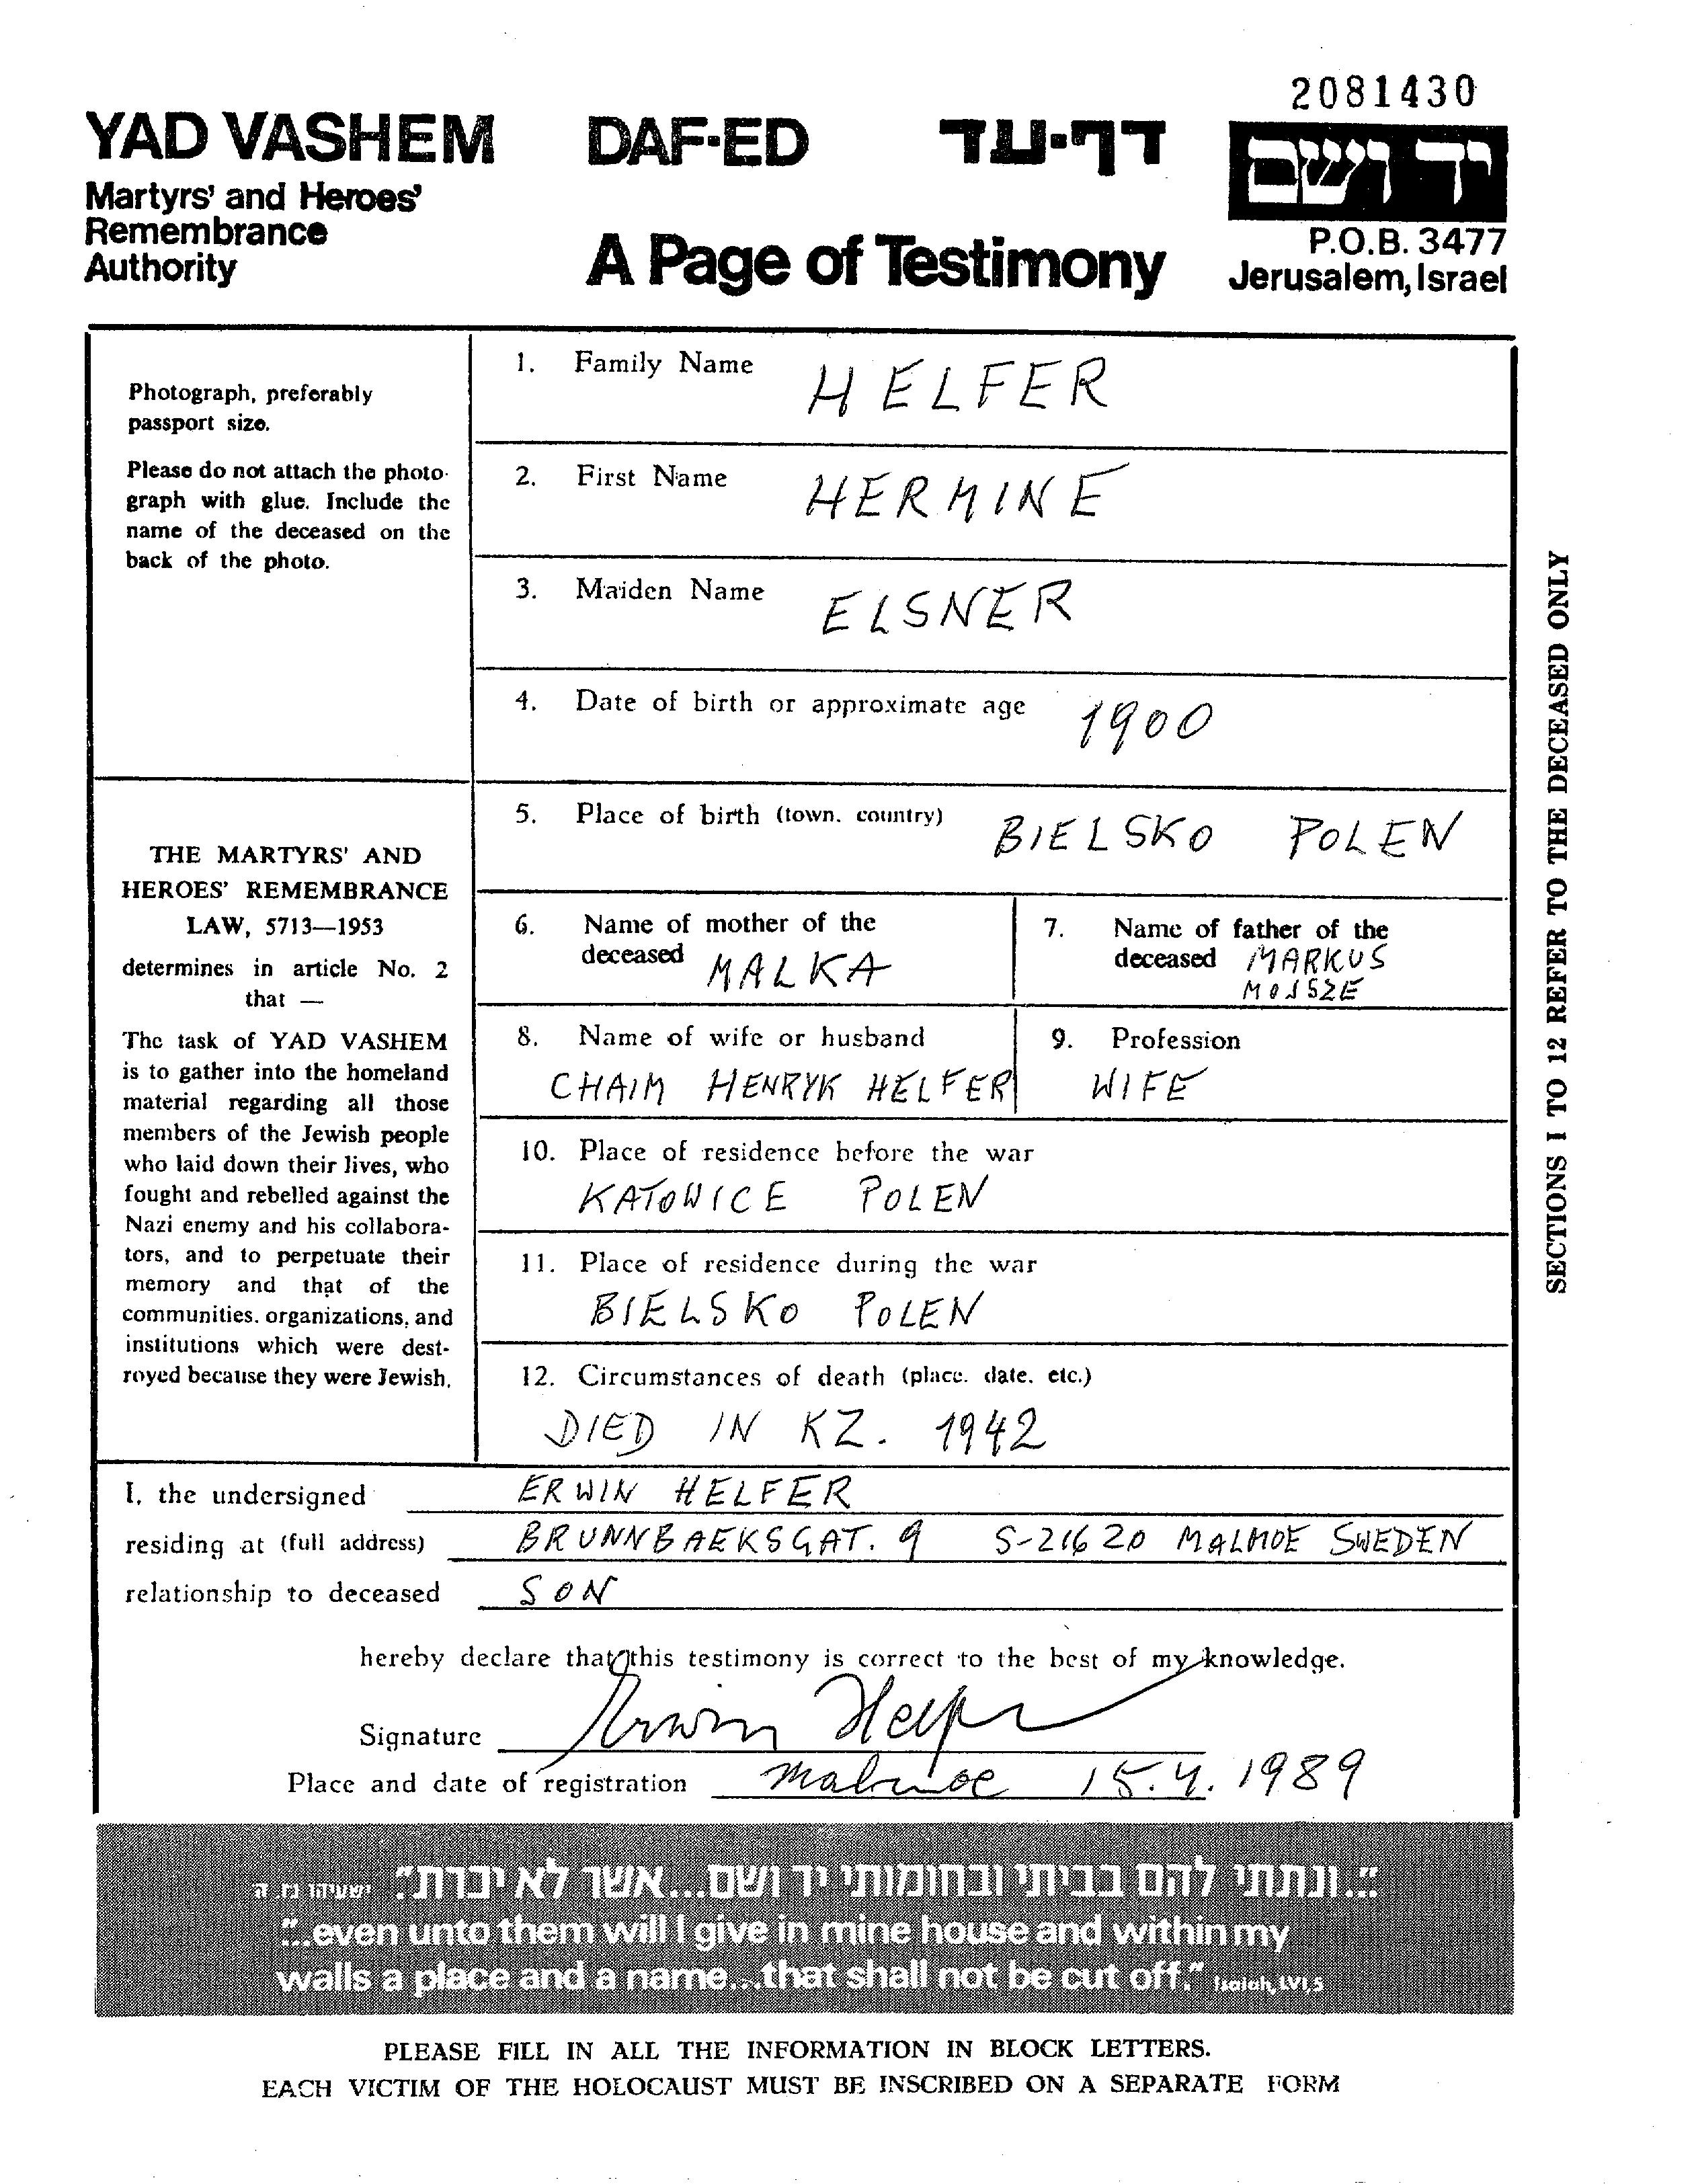 2081430
YAD VASHEM DAF-ED דף-עד
יד ושם
Martyrs' and Heroes'
Remembrance
Authority
A Page of Testimony
P.O.B. 3477
Jerusalem, Israel
Photograph, preferably
passport size.
Please do not attach the photo-
graph with glue. Include the
name of the deceased on the
back of the photo.
THE MARTYRS' AND
HEROES' REMEMBRANCE
LAW, 5713—1953
determines in article No. 2
that —
The task of YAD VASHEM
is to gather into the homeland
material regarding all those
members of the Jewish people
who laid down their lives, who
fought and rebelled against the
Nazi enemy and his collabora-
tors, and to perpetuate their
memory and that of the
communities, organizations, and
institutions which were dest-
royed because they were Jewish.
1. Family Name HELFER
2. First Name HERMINE
3. Maiden Name ELSNER
4. Date of birth or approximate age 1900
5. Place of birth (town, country) BIELSKO POLEN
6. Name of mother of the
deceased MALKA
7. Name of father of the
deceased MARKUS
MOJSZE
8. Name of wife or husband
CHAIM HENRYK HELFER
9. Profession
WIFE
10. Place of residence before the war
KATOWICE POLEN
11. Place of residence during the war
BIELSKO POLEN
12. Circumstances of death (place, date, etc.)
DIED IN KZ. 1942
SECTIONS 1 TO 12 REFER TO THE DECEASED ONLY
I, the undersigned ERWIN HELFER
residing at (full address) BRUNNBAEKSGAT. 9 S-216 20 MALMOE SWEDEN
relationship to deceased SON
hereby declare that this testimony is correct to the best of my knowledge.
Signature Erwin Helfer
Place and date of registration Malmoe 15.4.1989
"...ונתתי להם בביתי ובחומותי יד ושם...אשר לא יכרת". ישעיהו נו, ה
"...even unto them will I give in mine house and within my
walls a place and a name...that shall not be cut off." Isaiah, LVI,5
PLEASE FILL IN ALL THE INFORMATION IN BLOCK LETTERS.
EACH VICTIM OF THE HOLOCAUST MUST BE INSCRIBED ON A SEPARATE FORM